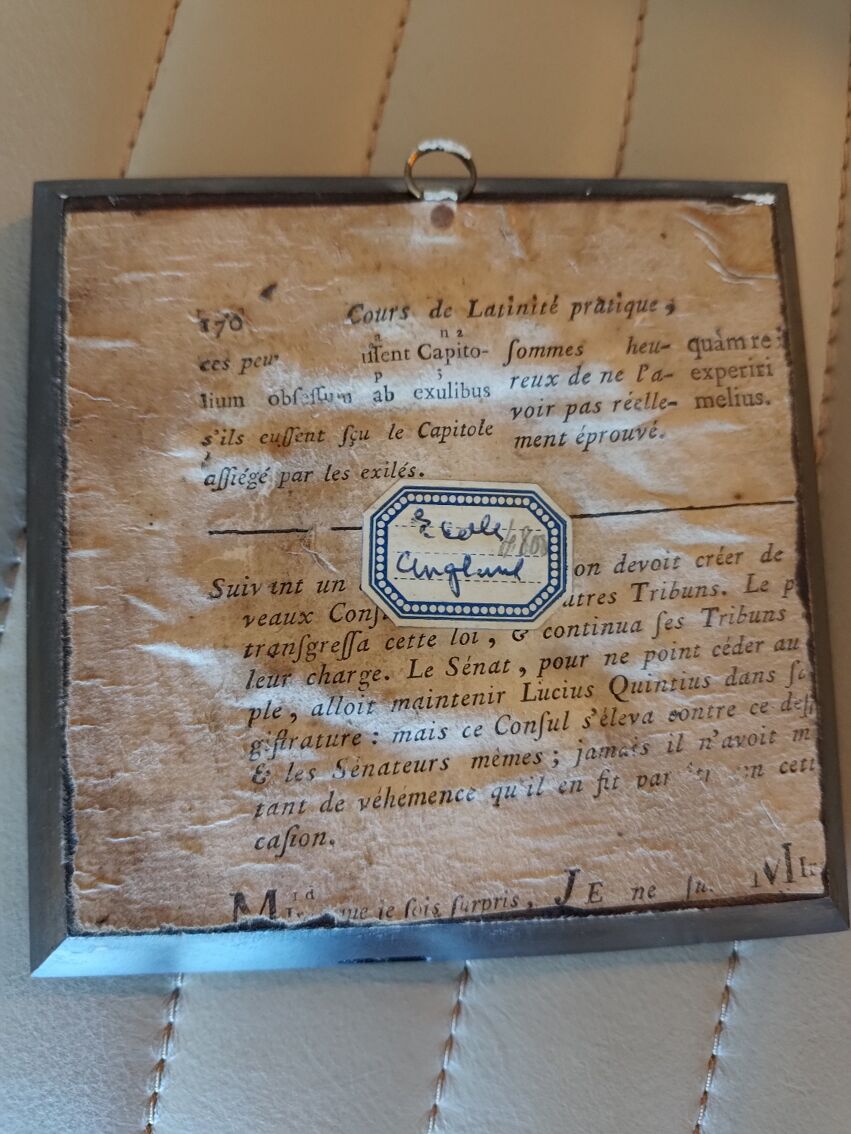 170 Cours de Latinité pratique,
ces peu ssent Capito-
lium obsessum ab exulibus
s'ils eussent sçu le Capitole
assiégé par les exilés.
sommes heu-
reux de ne l'a-
voir pas réelle-
ment éprouvé.
quàm re
experiri
melius.
Ecole
Anglaise
Suivant un on devoit créer de
veaux Cons autres Tribuns. Le p
transgressa cette loi, & continua ses Tribuns
leur charge. Le Sénat, pour ne point céder au
ple, alloit maintenir Lucius Quintius dans sa
gistrature: mais ce Consul s'éleva contre ce dess
& les Sénateurs mêmes; jamais il n'avoit m
tant de véhémence qu'il en fit en cett
casion.
que je sois surpris, JE ne